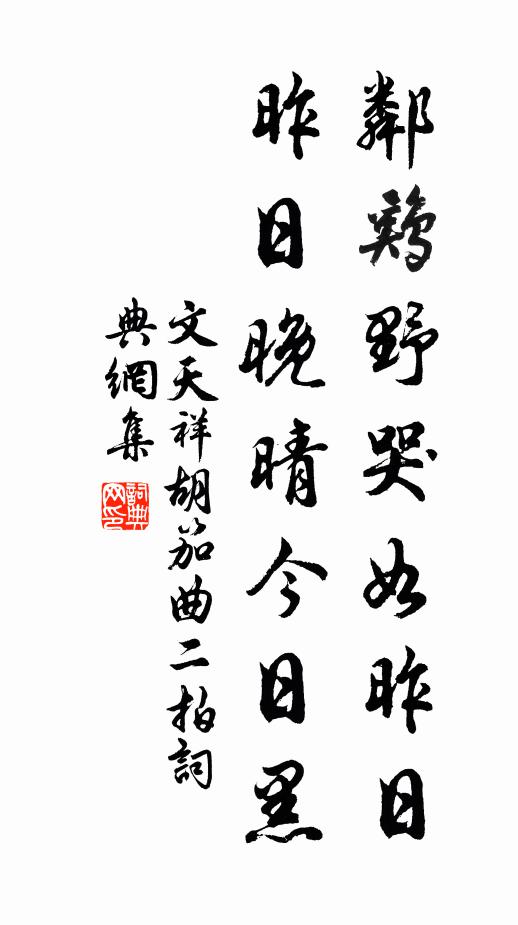 鄰鷄野哭如昨日
昨日晚晴今日黑
文天祥胡笳曲二拍詞
典網集
詞典
网印